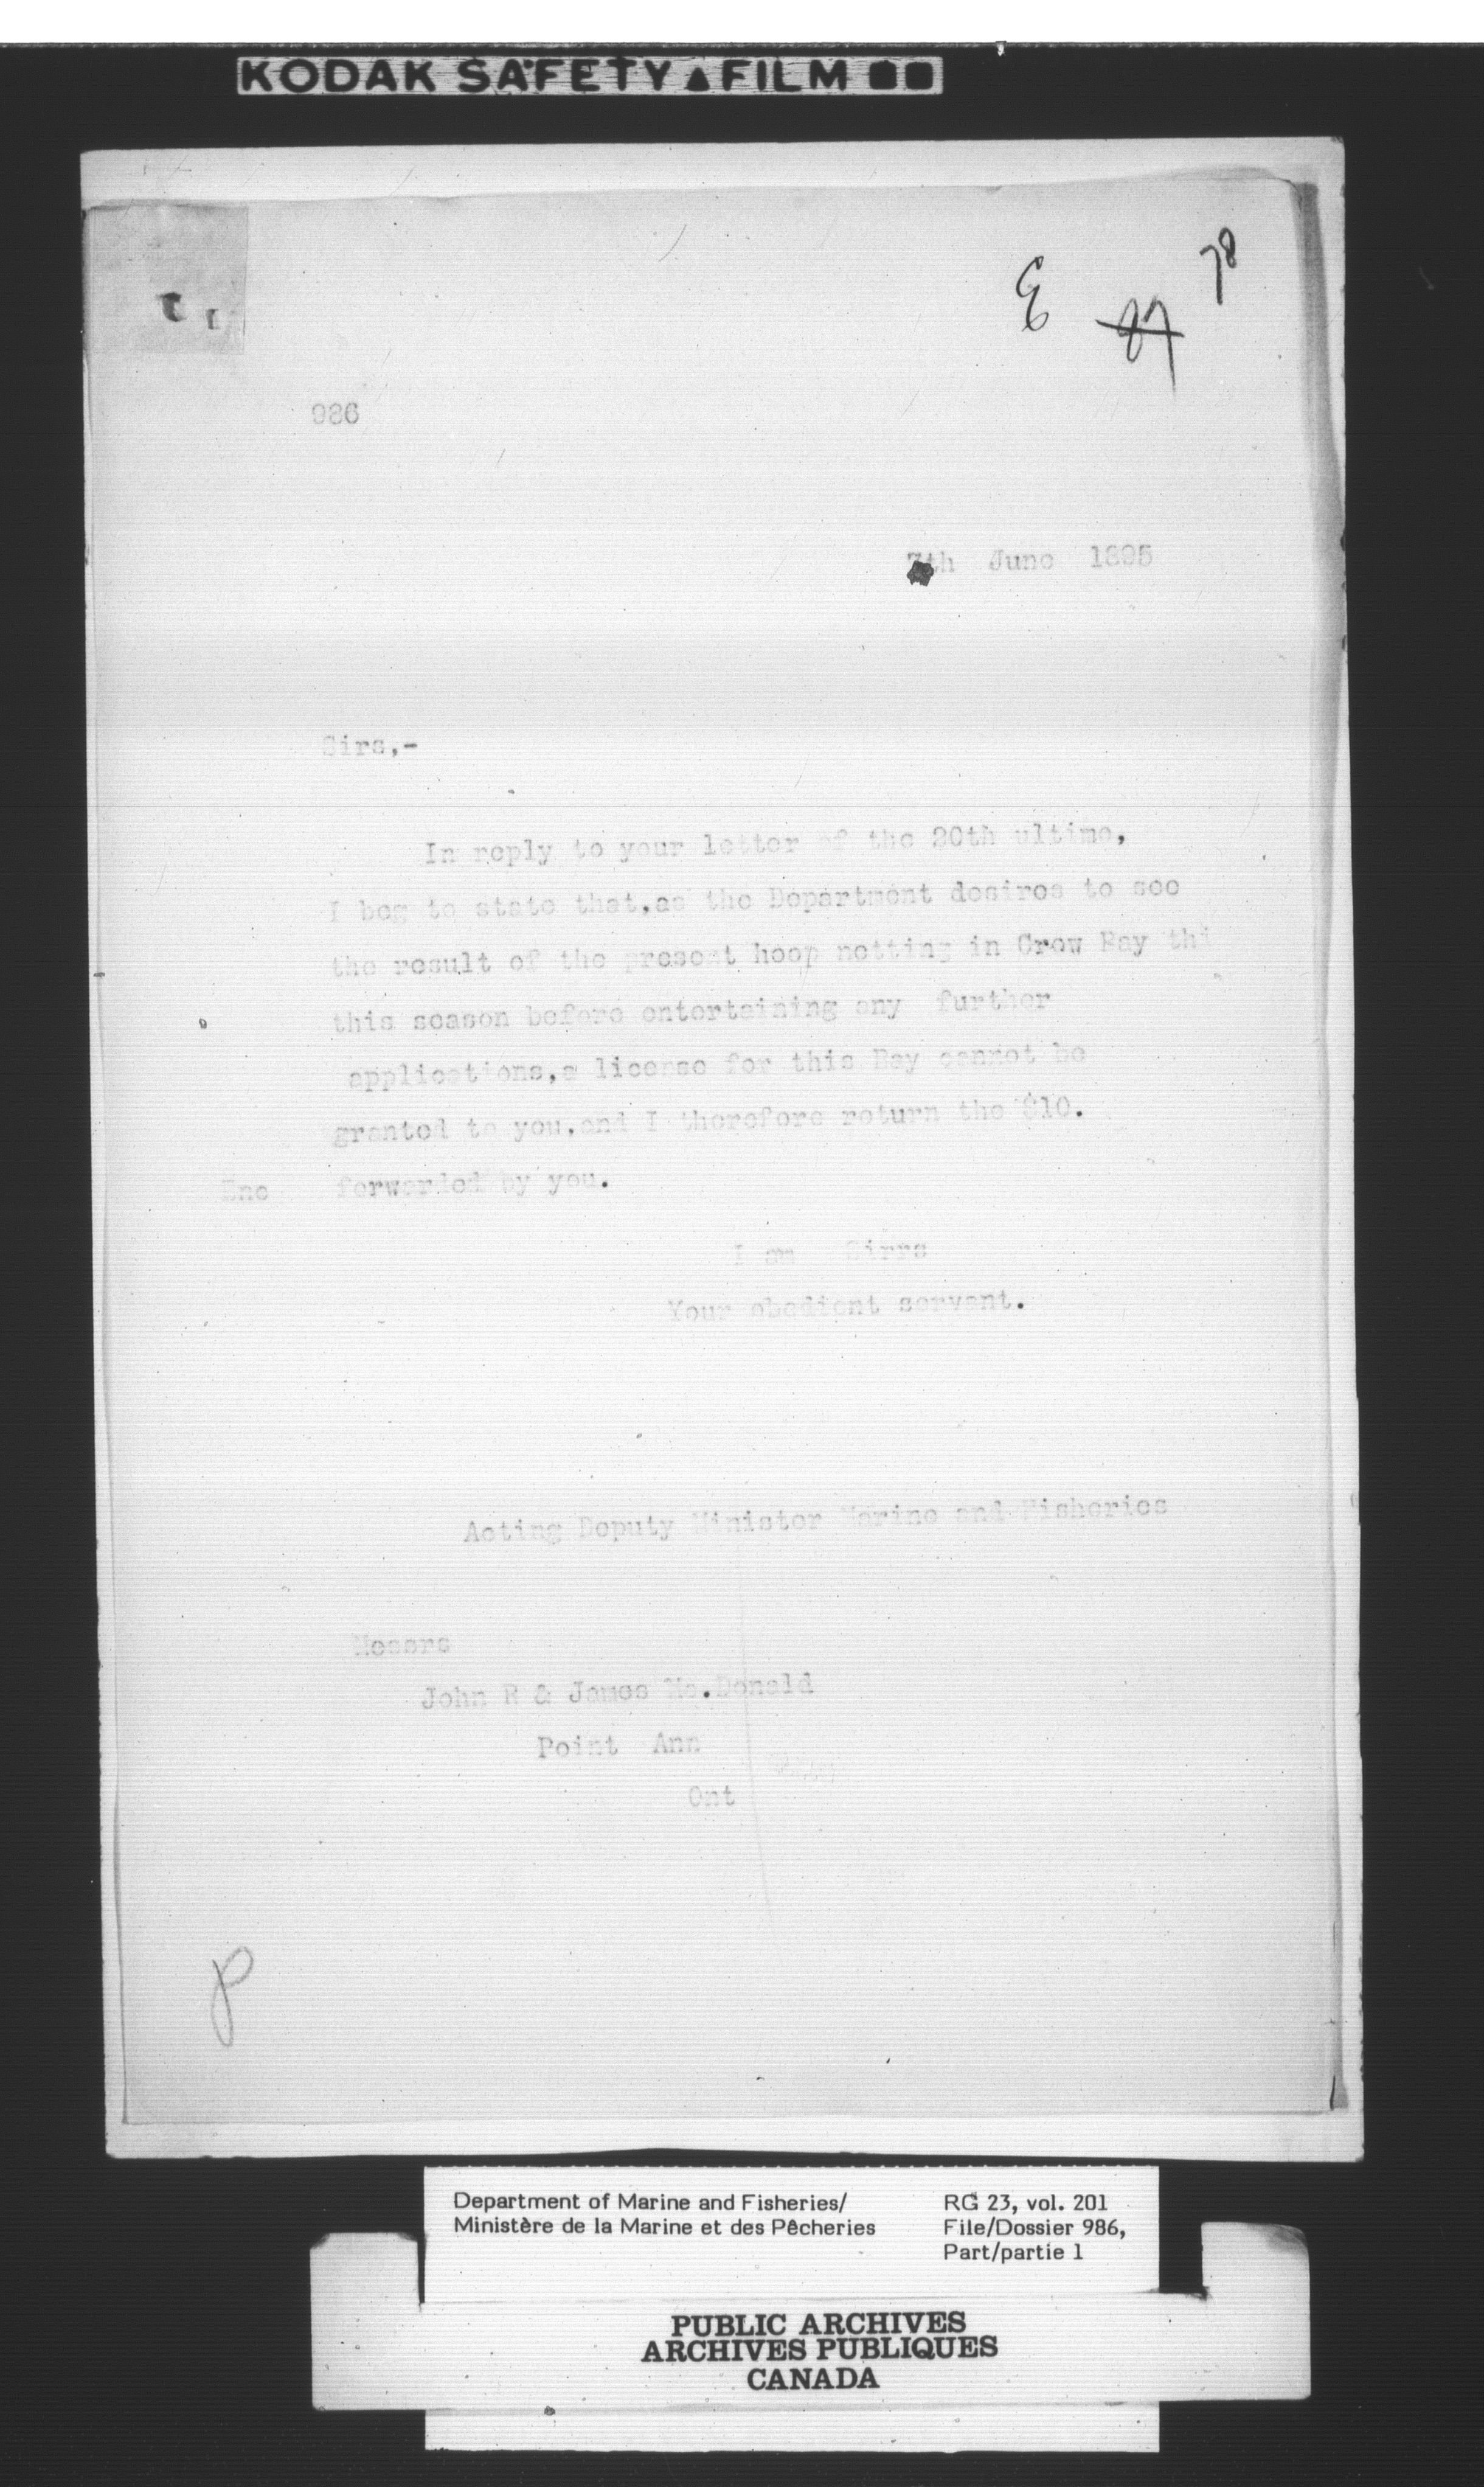 KODAK SAFETY ▲ FILM
E 87 78
986
7th June 1895
Sirs,-
In reply to your letter of the 20th ultimo,
I beg to state that,as the Department desires to see
the result of the present hoop netting in Crow Bay thi
this season before entertaining any further
applications,a license for this Bay cannot be
granted to you,and I therefore return the $10.
Enc forwarded by you.
I am Sirrs
Your obedient servant.
Acting Deputy Minister Marine and Fisheries
Messrs
John R & James Mc.Donald
Point Ann
Ont
P
Department of Marine and Fisheries/
Ministère de la Marine et des Pêcheries
RG 23, vol. 201
File/Dossier 986,
Part/partie 1
PUBLIC ARCHIVES
ARCHIVES PUBLIQUES
CANADA